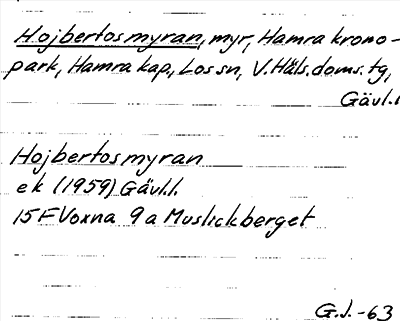 Hojbertosmyran, myr, Hamra krono-
park, Hamra kap., Los sn, V. Häls. doms. tg,
Gävl. l.
Hojbertosmyran
ek (1959) Gävl. l.
15 F Voxna 9 a Muslickberget
G.J. -63